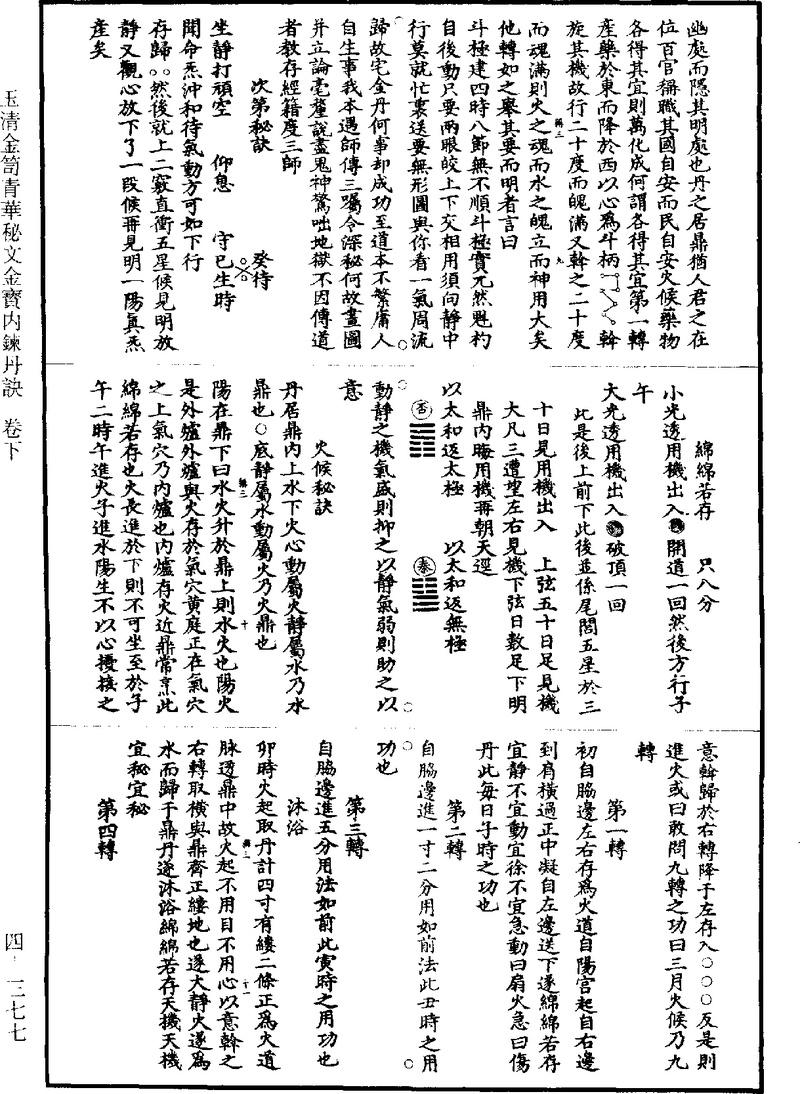 幽處而隱其明處也丹之居鼎猶人君之在
位百官稱職其國自安而民自安火候藥物
各得其宜則萬化成何謂各得其宜第一轉
產藥於東而降於西以心爲斗柄斡
旋其機故行二十度而魄滿又斡之二十度
而魂滿則火之魂而水之魄立而神用大矣
他轉如之舉其要而明者言曰
斗極建四時八節無不順斗極實兀然魁杓
自後動只要兩眼皎上下交相用須向靜中
行莫就忙裏送要無形圖與你看一氣周流
歸故宅金丹何事却成功至道本不繁庸人
自生事我本遇師傳三囑令深秘何故畫圖
并立論毫釐說盡鬼神驚咄地獄不因傳道
者教存經籍度三師
次第秘訣
癸待
坐靜打頑空 仰息 守已生時
聞命炁沖和待氣動方可如下行
存歸○○然後就上二竅直衝五星候見明放
靜又觀心放下了一段候再見明一陽真炁
產矣
綿綿若存 只八分
小光透用機出入開道一回然後方行子
午
大光透用機出入破頂一回
此是後上前下此後並係尾閭五星於三
十日見用機出入 上弦五十日足見機
大凡三遭望左右見機下弦日數足下明
鼎內晦用機再朝天逕
以太和返太極 以太和返無極
否 泰
動靜之機氣盛則抑之以靜氣弱則助之以
意
火候秘訣
丹居鼎內上水下火心動屬火靜屬水乃水
鼎也○底靜屬水動屬火乃火鼎也
陽在鼎下曰水火升於鼎上則水火也陽火
是外爐外爐與火存於氣穴黄庭正在氣穴
之上氣穴乃內爐也內爐存火近鼎常烹此
綿綿若存也火長進於下則不可坐至於子
午二時午進火子進水陽生不以心擾接之
意斡歸於右轉降于左存入○○○反是則
進火或曰敢問九轉之功曰三月火候乃九
轉
第一轉
初自脇邊左右存爲火道自陽宫起自右邊
到肩橫過正中凝自左邊送下遂綿綿若存
宜靜不宜動宜徐不宜急動曰扇火急曰傷
丹此每日子時之功也
第二轉
自脇邊進一寸二分用如前法此丑時之用
功也
第三轉
自脇邊進五分用法如前此寅時之用功也
沐浴
卯時火起取丹計四寸有縷二條正爲火道
脉透鼎中故火起不用目不用心以意斡之
右轉取橫與鼎齊正縷地也遂大靜火遂爲
水而歸于鼎丹遂沐浴綿綿若存天機天機
宜秘宜秘
第四轉
玉清金笥青華秘文金寶內鍊丹訣 卷下
四‧三七七